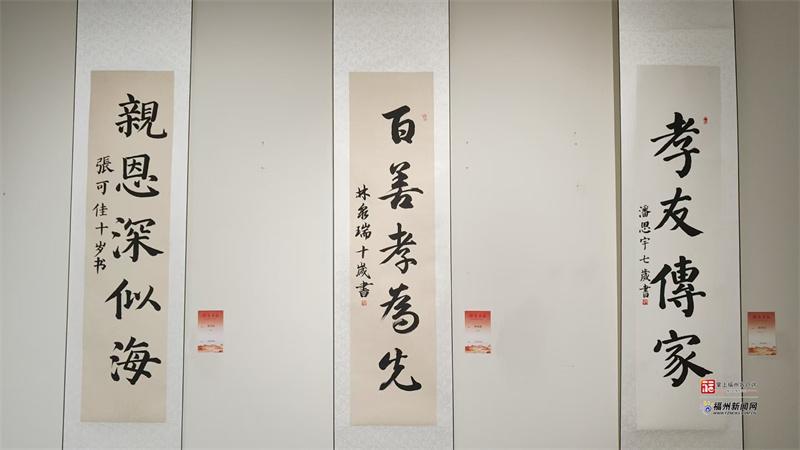 親恩深似海
張可佳十岁书
百善孝為先
林泉瑞十歲書
孝友傳家
潘思宇七歲書
掌上福州客户端
福州新闻网
WWW.FZNEWS.COM.CN